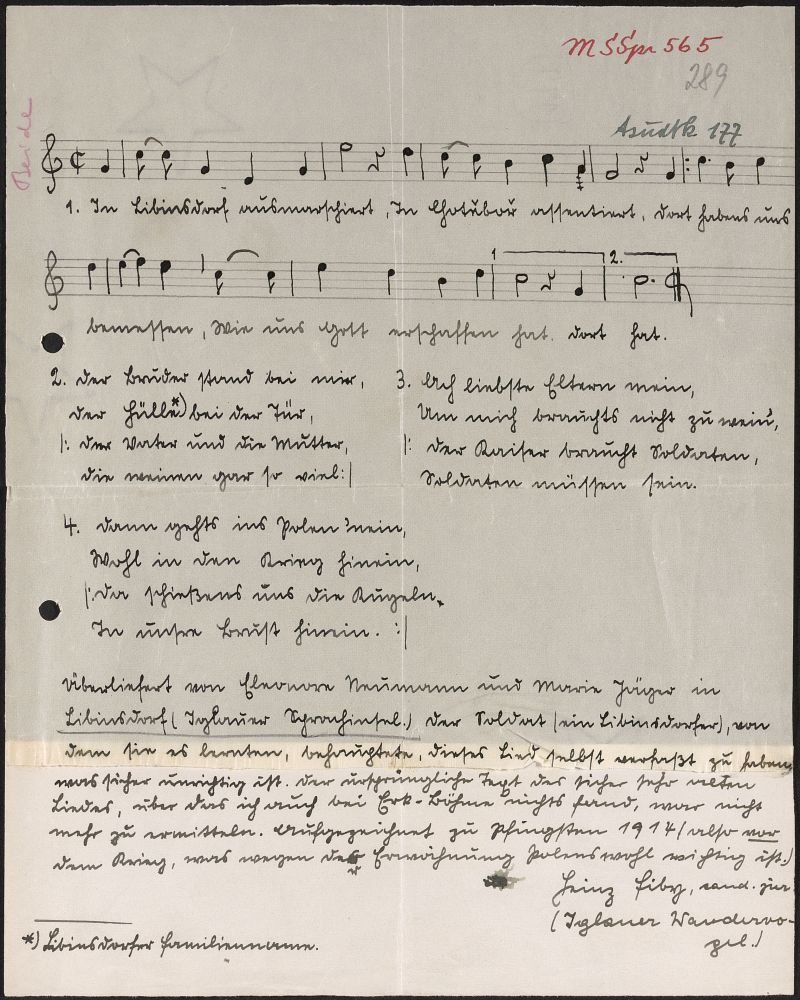 MSSpr 565
289
Asudtk 177
Beide
1. In Libinsdorf ausmarschiert, In Chotěboř assentiert, dort habens uns
1 2.
bemessen, Wie uns Gott erschaffen hat. dort hat.
2. Der Bruder stand bei mir,
der Hülle*) bei der Tür,
|: Der Vater und die Mutter,
die weinen gar so viel :|
3. Ach liebste Eltern mein,
Um mich brauchts nicht zu wein',
|: Der Kaiser braucht Soldaten,
Soldaten müssen sein.
4. Dann gehts ins Polen 'nein,
Wohl in den Krieg hinein,
|: Da schießens uns die Kugeln,
In unsre Brust hinein. :|
Überliefert von Eleonore Neumann und Marie Jäger in
Libinsdorf (Iglauer Sprachinsel.) Der Soldat (ein Libinsdorfer), von
dem sie es lernten, behauptete, dieses Lied selbst verfaßt zu haben,
was sicher unrichtig ist. Der ursprüngliche Text des sicher sehr alten
Liedes, über das ich auch bei Erk-Böhme nichts fand, war nicht
mehr zu ermitteln. Aufgezeichnet zu Pfingsten 1914 (also vor
dem Krieg, was wegen der Erwähnung Polens wohl wichtig ist.)
Heinz, cand. jur.
(Iglauer Wandervo-
gel.)
*) Libinsdorfer Familienname.